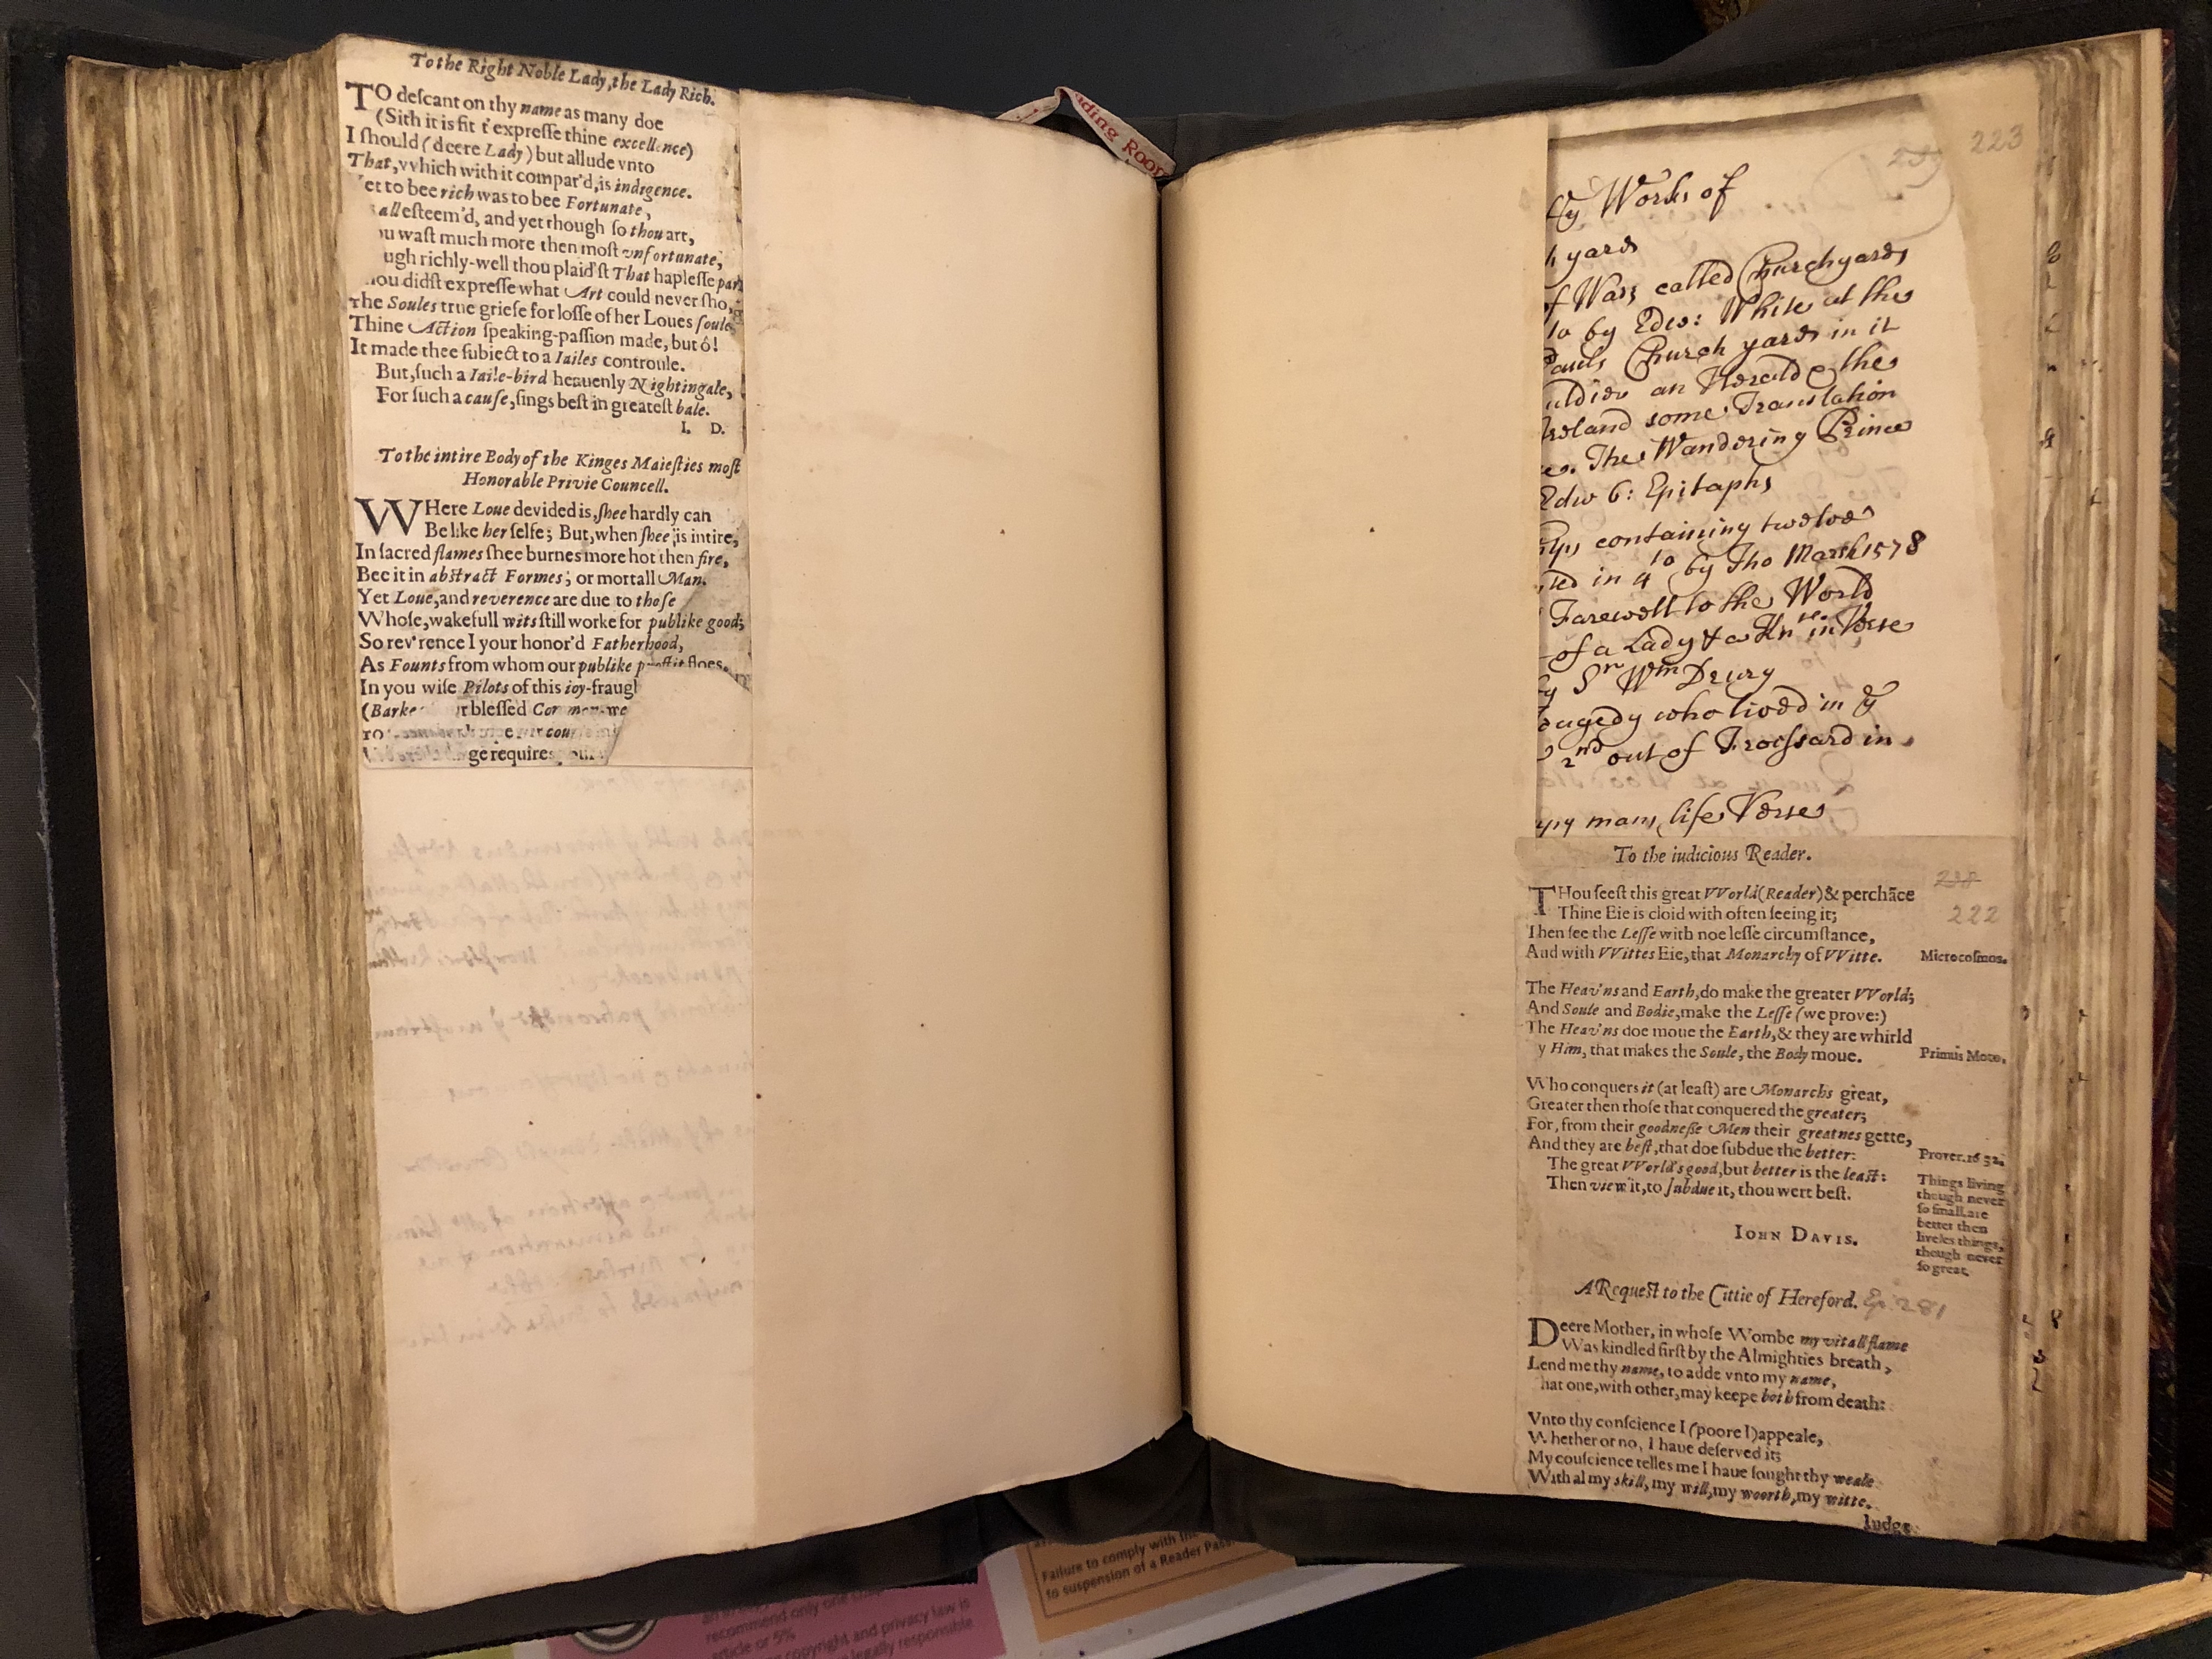 To the Right Noble Lady, the Lady Rich.
TO deſcant on thy name as many doe
(Sith it is fit t'expreſſe thine excellence)
I ſhould (deere Lady) but allude vnto
That, vvhich with it compar'd, is indigence.
et to bee rich was to bee Fortunate,
all eſteem'd, and yet though ſo thou art,
u waſt much more then moſt vnfortunate,
ugh richly-well thou plaid'ſt That hapleſſe part
hou didſt expreſſe what Art could never ſho,
The Soules true griefe for loſſe of her Loues ſoule
Thine Action ſpeaking-paſſion made, but ô!
It made thee ſubiect to a Iailes controule.
But, ſuch a Iaile-bird heauenly Nightingale,
For ſuch a cauſe, ſings beſt in greateſt bale.
I. D.
To the intire Body of the Kinges Maieſties moſt
Honorable Privie Councell.
WHere Loue devided is, ſhee hardly can
Be like her ſelfe; But, when ſhee is intire,
In ſacred flames ſhee burnes more hot then fire,
Bee it in abstract Formes; or mortall Man.
Yet Loue, and reverence are due to thoſe
Whoſe, wakefull wits ſtill worke for publike good;
So rev'rence I your honor'd Fatherhood,
As Founts from whom our publike profit floes.
In you wiſe Pilots of this ioy-fraugh
(Barke r bleſſed Common-we
ge requires
ding Room
223
ſy Works of
h yard
f Wars called Churchyards
to by Edw: White at the
Pauls Church yard in it
uldier an Herald & the
Ireland some Translation
es. The Wandering Prince
Edw 6: Epitaphs
containing twelve
ted in 4to by Tho Marsh 1578
Farewell to the World
of a Lady & a Knt in Verse
by Sr Wm Drury
ragedy who lived in ye
2nd out of Froissard in
ppy mans life Verse
To the iudicious Reader.
THou ſeeſt this great VVorld (Reader) & perchāce
Thine Eie is cloid with often ſeeing it;
222
Then ſee the Leſſe with noe leſſe circumſtance,
And with VVittes Eie, that Monarchy of VVitte.
Microcoſmos.
The Heav'ns and Earth, do make the greater VVorld;
And Soule and Bodie, make the Leſſe (we prove:)
The Heav'ns doe moue the Earth, & they are whirld
y Him, that makes the Soule, the Body moue.
Primus Moto.
Who conquers it (at leaſt) are Monarchs great,
Greater then thoſe that conquered the greater;
For, from their goodneſſe Men their greatnes gette,
And they are beſt, that doe ſubdue the better:
Prover. 16 32.
The great VVorld's good, but better is the leaſt:
Then view it, to ſubdue it, thou wert beſt.
Things living
though never
ſo ſmall, are
better then
liveles things,
though never
ſo great.
IOHN DAVIS.
A Requeſt to the Cittie of Hereford. Ep. 281
Deere Mother, in whoſe Wombe my vitall flame
Was kindled firſt by the Almighties breath,
Lend me thy name, to adde vnto my name,
hat one, with other, may keepe both from death:
Vnto thy conſcience I (poore I) appeale,
Whether or no, I haue deſerved it;
My couſcience telles me I haue ſought thy weale
With al my skill, my will, my woorth, my witte.
Iudge
Failure to comply with the
to suspension of a Reader Pass
recommend only one
article or 5%
copyright and privacy law is
legally responsible